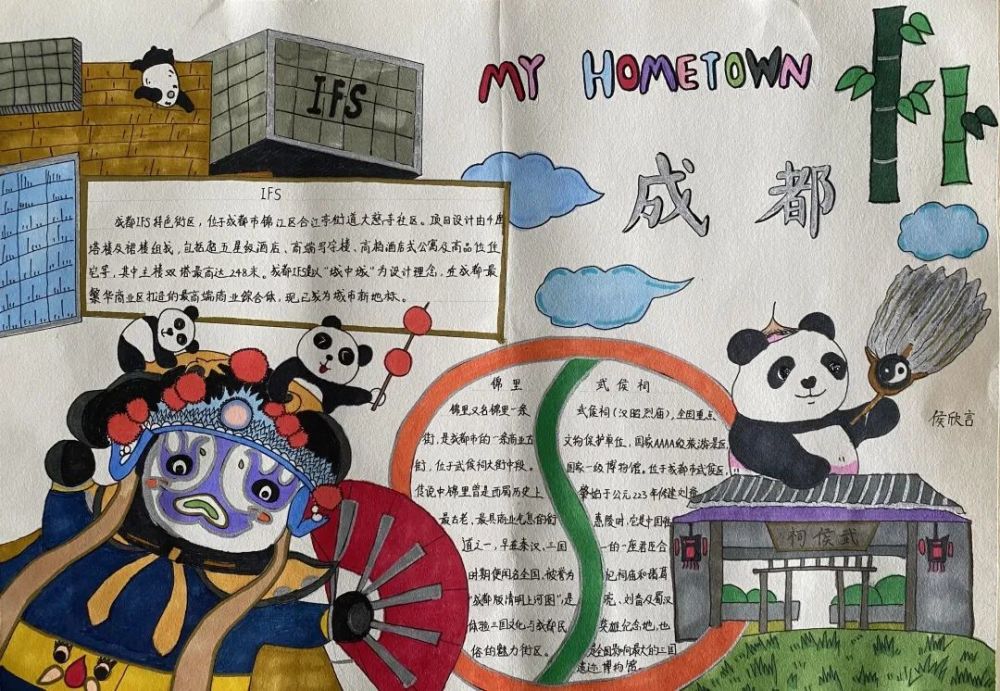 IFS
MY HOMETOWN
成都
IFS
成都IFS特色街区，位于成都市锦江区合江亭街道大慈寺社区。项目设计由4座
塔楼及裙楼组成，包括超五星级酒店、高端写字楼、高档酒店式公寓及商品性住
宅等，其中主楼双塔最高达248米。成都IFS是以“城中城”为设计理念，在成都最
繁华商业区打造的最高端商业综合体，现已成为城市新地标。
锦里
锦里又名锦里一条
街，是成都市的一条商业古
街，位于武侯祠大街中段。
传说中锦里曾是西蜀历史上
最古老、最具商业气息的街
道之一，早在秦汉、三国
时期便闻名全国，被誉为
“成都版清明上河图”，是
体验三国文化与成都民
俗的魅力街区。
武侯祠
武侯祠（汉昭烈庙），全国重点
文物保护单位，国家AAAA级旅游景区，
国家一级博物馆。位于成都市武侯区，
肇始于公元223年修建刘备
惠陵时，它是中国唯
一的一座君臣合
祀祠庙和诸葛
亮、刘备及蜀汉
英雄纪念地，也
是全国影响最大的三国
遗迹博物馆
侯欣言
祠侯武